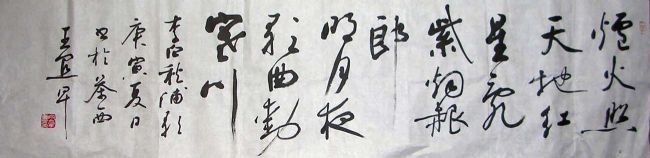 爐火照
天地红
星亂
紫烟赧
郎
明月夜
歌曲動
寒川
李白秋浦歌
庚寅夏日
书於茶西
王